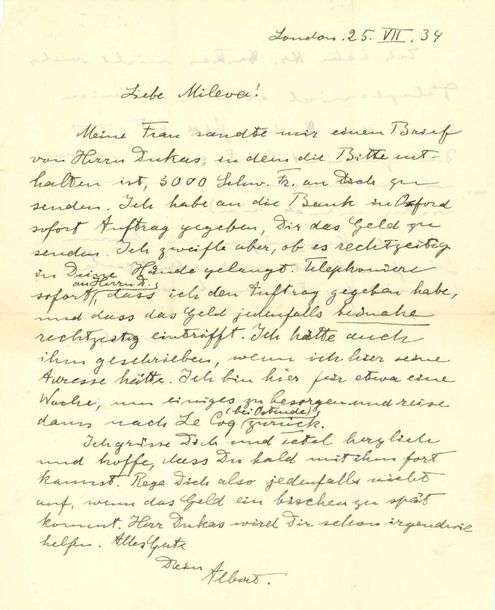 London. 25. VII. 34
Liebe Mileva!
Meine Frau sandte mir einen Brief
von Herrn Dukas, in dem die Bitte ent-
halten ist, 5000 Schw. Fr. an Dich zu
senden. Ich habe an die Bank in Oxford
sofort Auftrag gegeben, Dir das Geld zu
senden. Ich zweifle aber, ob es rechtzeitig
in Deine Hände gelangt. Telephoniere
sofort an Herrn D., dass ich den Auftrag gegeben habe,
und dass das Geld jedenfalls beinahe
rechtzeitig eintrifft. Ich hätte auch
ihm geschrieben, wenn ich hier seine
Adresse hätte. Ich bin hier für etwa eine
Woche, um einiges zu besorgen und reise
dann nach Le Coq (bei Ostende) zurück.
Ich grüsse Dich und Tetel herzlich
und hoffe, dass Du bald mit ihm fort
kannst. Rege Dich also jedenfalls nicht
auf, wenn das Geld ein bischen zu spät
kommt. Herr Dukas wird Dir schon irgendwie
helfen. Alles Gute
Dein
Albert.